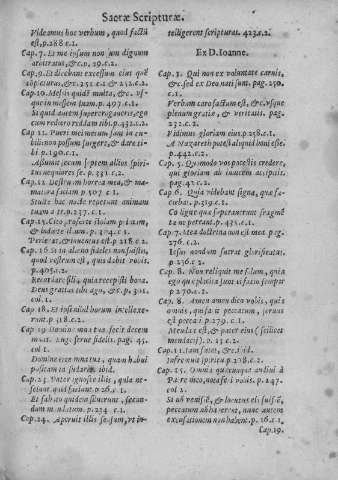 Sacræ Scripturæ.
Videamus hoc verbum, quod factũ
est, p.288 c.1.
Cap. 7. Et me ipsum non sum dignum
arbitratus, &c. p. 29. c.2.
Cap. 9. Et dicebant excessum eius quẽ
Cap. 10. Messis quidẽ multa, &c. vs-
que in messem suam. p. 497. c.1.
Cap. 11. Pueri mei mecum sunt in cu-
bili non possum surgere, & dare ti-
bi p.190.c.1.
Assumit secum septem alios spiri-
tus nequiores se. p. 331. c.2.
Cap. 12. Destruam horrea mea, & ma-
iora faciam p. 507. c.1.
Stulte hac nocte repetunt animam
tuam a te. p.237. c.1.
Cap. 15. Cito, proferte stolam primam,
& induite illum. p. 304. c.1.
Perierat, & inuentus est p. 218 c.2.
Cap. 16. Si in alieno fideles non fuistis,
quod vestrum est, quis dabit vobis.
p. 405. c.2.
Recordare fili, quia recepisti bona.
Deus gratias tibi ago, &c. p. 301.
col. 1.
Cap. 18. Et ipsi nihil horum intellexe-
runt. p. 518. c.2.
Cap. 19. Domine mna tua fecit decem
mnas. Euge serue fidelis. pag. 45.
col. 1.
Domine ecce mna tua, quam habui
positam in sudario. ibid.
Cap. 23. Pater ignosce illis, quia ne-
sciunt quid faciunt. p.26. c.1.
Et sabbato quidem siluerunt, secun-
dum mandatum. p.234 c.1.
Cap. 24. Aperuit illis sensum, vt in-
telligerent scripturas. 423.c.2.
Ex D. Ioanne.
Cap. 1. Qui non ex voluntate carnis,
&c. sed ex Deo nati sunt. pag. 250.
c.1.
Verbum caro factum est, &c. vsque
plenum gratiæ, & veritatis. pag.
232. c.2.
Vidimus gloriam eius. p.258. c.1.
A Nazareth potest aliquid boni esse.
p.442. c.2.
Cap. 5. Quomodo vos potestis credere,
qui gloriam ab inuicem accipitis.
pag. 42. c.2.
Cap. 6. Quia videbant signa, quæ fa-
ciebat. p.519. c.1.
Colligite quæ superauerunt fragmẽ
ta ne pereant. p. 137. c.1.
Cap. 7. Mea doctrina non est mea. pag.
276. c.2.
Iesus nondum fuerat glorificatus.
p.256. c.2.
Cap. 8. Non reliquit me solum, quia
ego quæ placita sunt ei facio semper
p.270. c.1.
Cap. 8. Amen amen dico vobis, quia
omnis, qui facit peccatum, seruus
est peccati. p.279. c.1.
Mendax est, & pater eius (scilicet
mendacij). p.23. c.2.
Infremuit spiritu p.278. c.2.
Cap. 15. Omnia quæcunque audiui à
Patre meo, nota feci vobis. p. 247.
col 2.
Si nõ venissẽ, & locutus eis fuissẽ,
peccatum nõ haberent, nunc autem
excusationem non habent. p.16. c.1.
Cap.19.